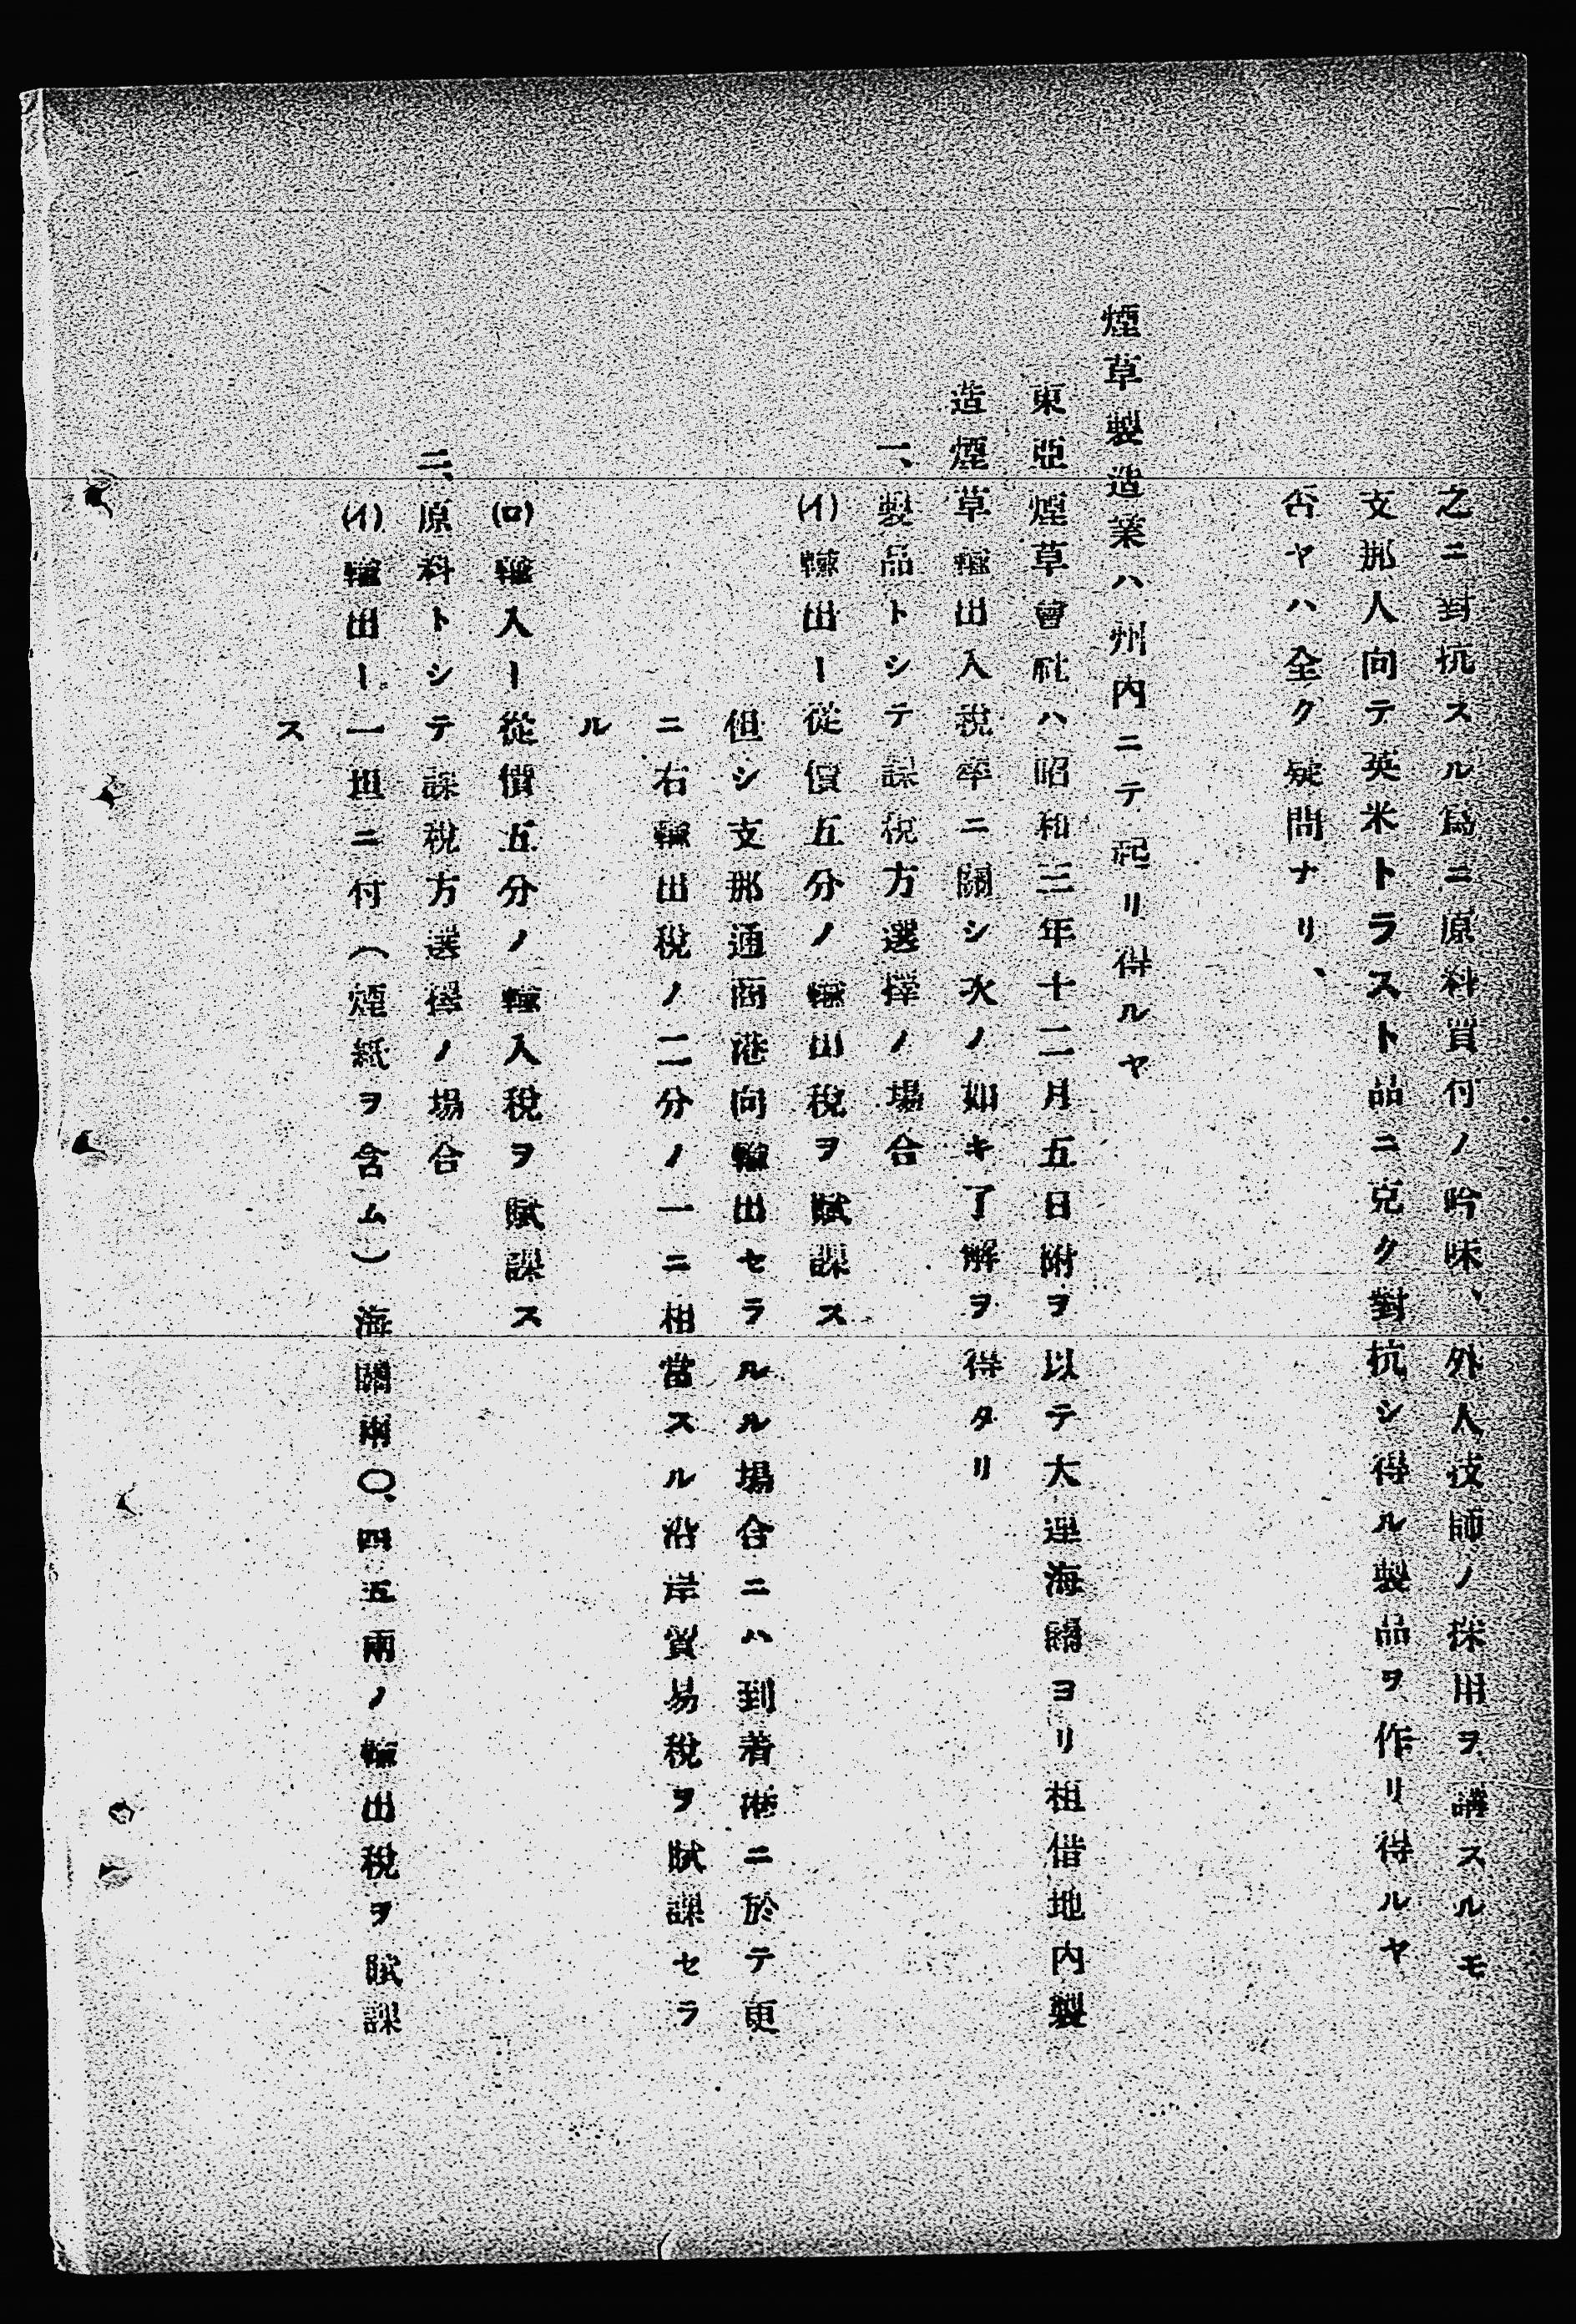 之ニ對抗スル爲ニ原料買付ノ吟味、外人技師ノ採用ヲ講スルモ
支那人向テ英米トラスト品ニ克ク對抗シ得ル製品ヲ作リ得ルヤ
否ヤハ全ク疑問ナリ、
煙草製造業ハ州内ニテ起リ得ルヤ
東亞煙草會社ハ昭和三年十二月五日附ヲ以テ大連海關ヨリ租借地内製
造煙草輸出入税率ニ關シ次ノ如キ了解ヲ得タリ
一、製品トシテ課税方選擇ノ場合
(イ)輸出ー從價五分ノ輸出税ヲ賦課ス
但シ支那通商港向輸出セラルル場合ニハ到着港ニ於テ更
ニ右輸出税ノ二分ノ一ニ相當スル沿岸貿易税ヲ賦課セラ
ル
(ロ)輸入ー從價五分ノ輸入税ヲ賦課ス
二、原料トシテ課税方選擇ノ場合
(イ)輸出ー一担ニ付(煙紙ヲ含ム)海關兩〇、四五兩ノ輸出税ヲ賦課
ス